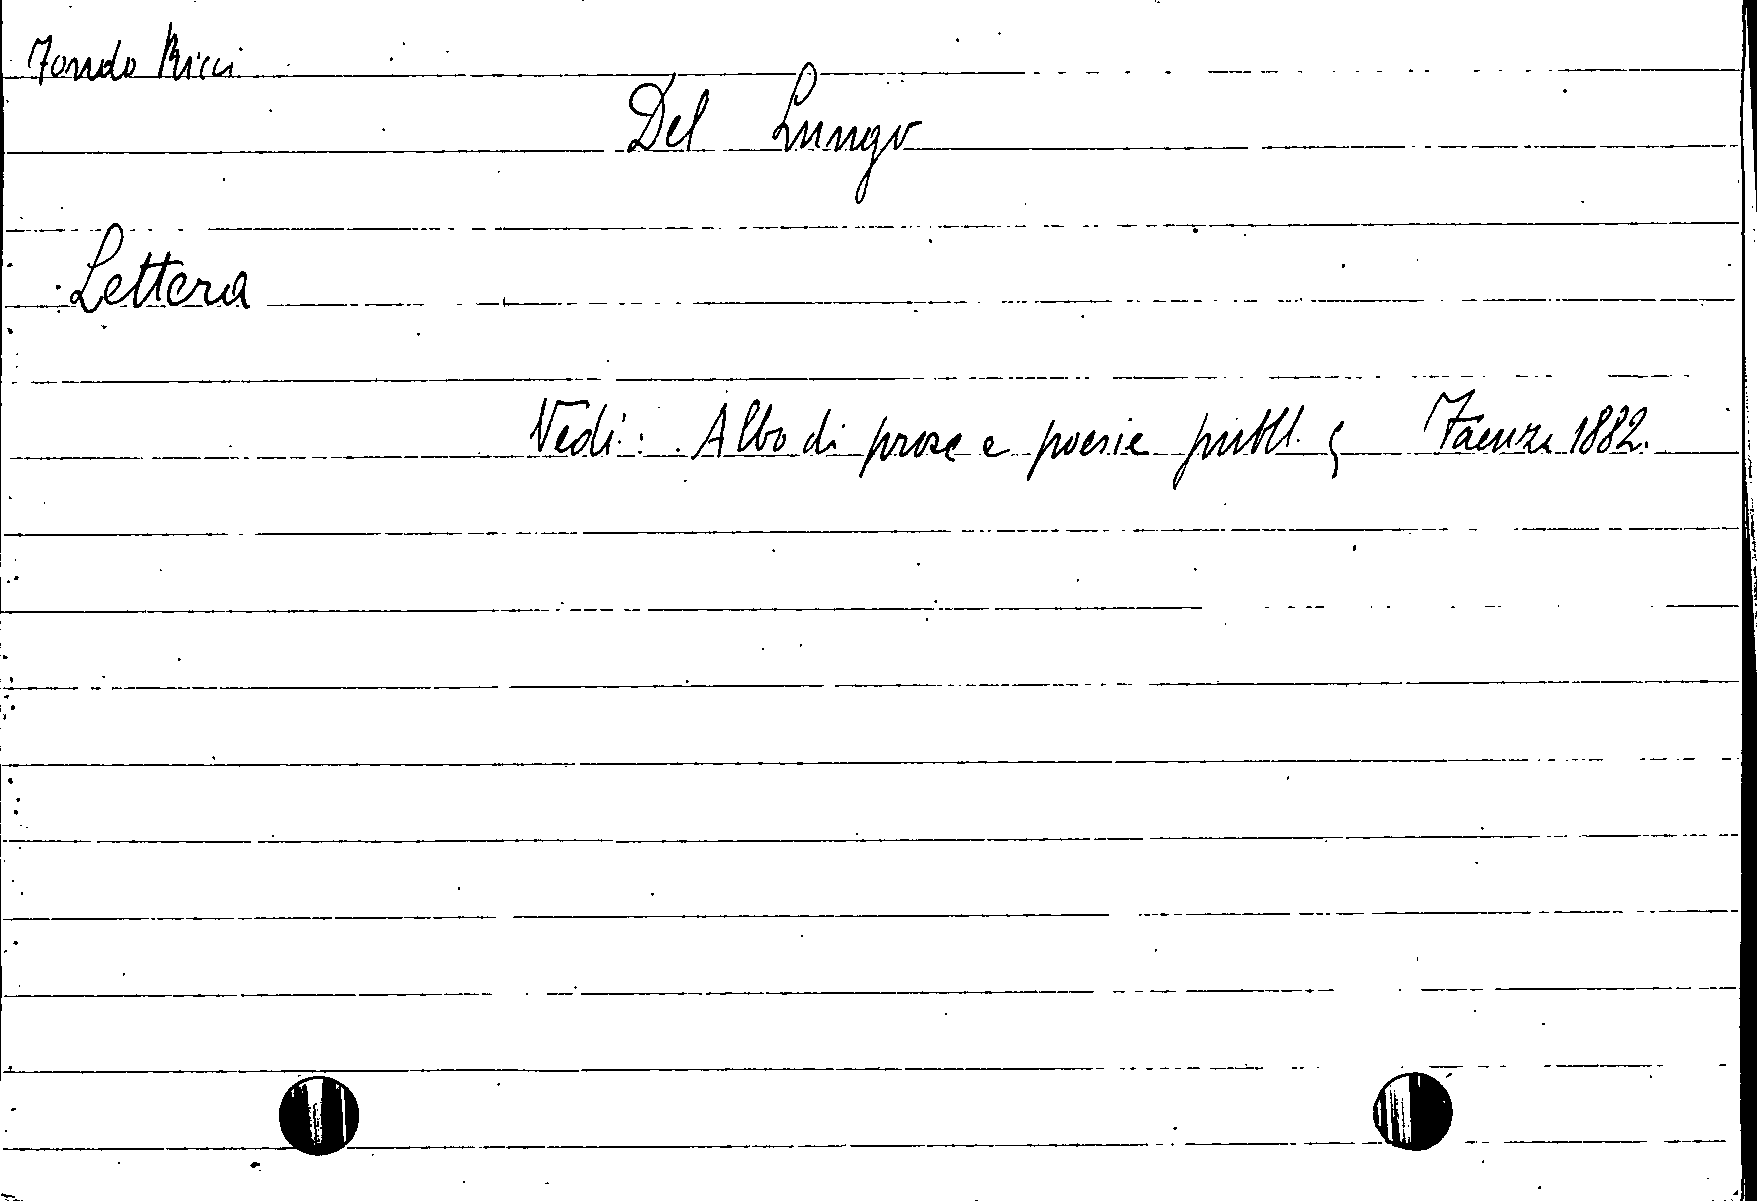 Fondo Ricci
Del Lungo
Lettera
Vedi: Albo di prose e poesie publl. Faenza 1882.